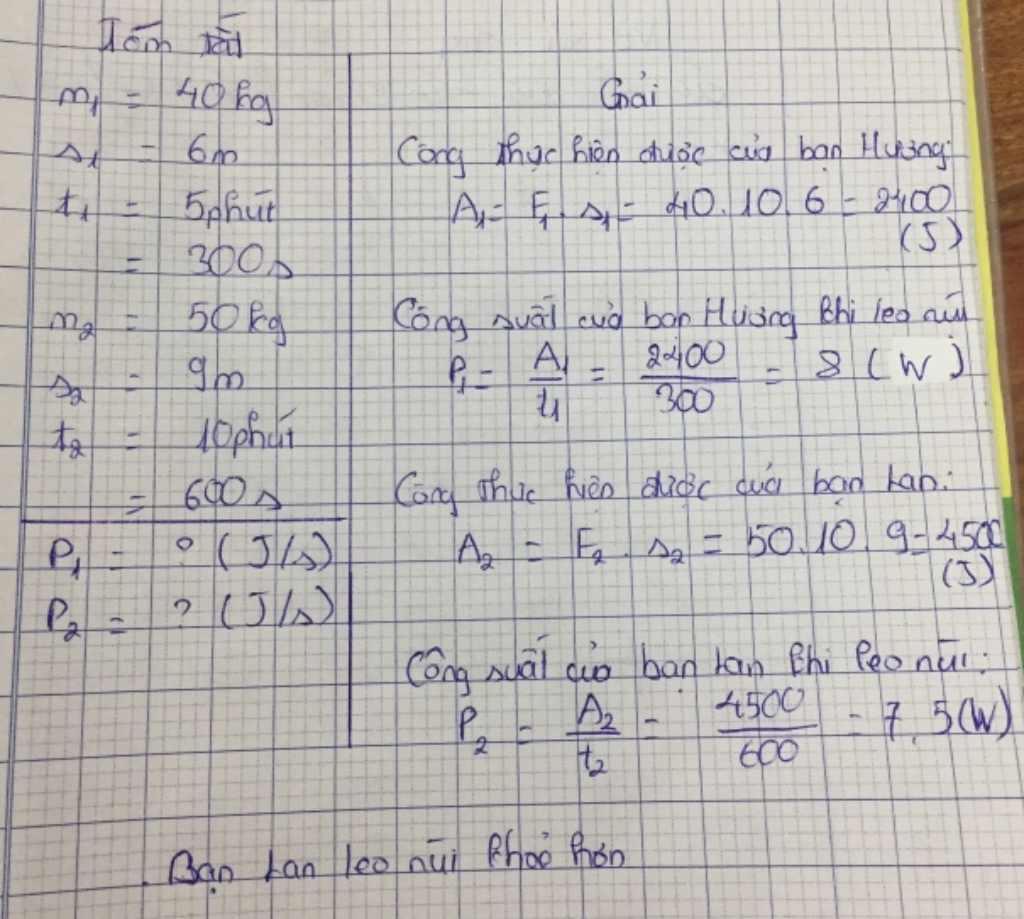 Tóm tắt
m₁ = 40 kg
s₁ = 6m
t₁ = 5 phút
= 300s
m₂ = 50 kg
s₂ = 9m
t₂ = 10 phút
= 600s
P₁ = ? (J/s)
P₂ = ? (J/s)
Giải
Công thực hiện được của bạn Hương:
A₁ = F₁. s₁ = 40. 10. 6 = 2400
(J)
Công suất của bạn Hương khi leo núi
P₁ = A₁/t₁ = 2400/300 = 8 (W)
Công thực hiện được của bạn Lan:
A₂ = F₂. s₂ = 50. 10. 9 = 4500
(J)
Công suất của bạn Lan khi leo núi:
P₂ = A₂/t₂ = 4500/600 = 7,5(W)
Bạn Lan leo núi khoẻ hơn